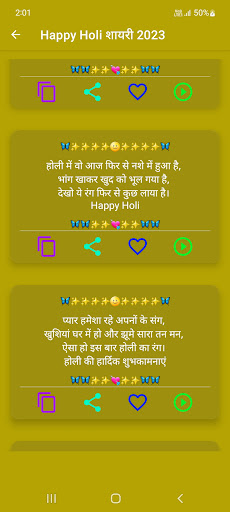 2:01
50%
Happy Holi शायरी 2023
होली में वो आज फिर से नशे में हुआ है,
भांग खाकर खुद को भूल गया है,
देखो ये रंग फिर से कुछ लाया है।
Happy Holi
प्यार हमेशा रहे अपनों के संग,
खुशियां घर में हो और झूमे सारा तन मन,
ऐसा हो इस बार होली का रंग।
होली की हार्दिक शुभकामनाएं